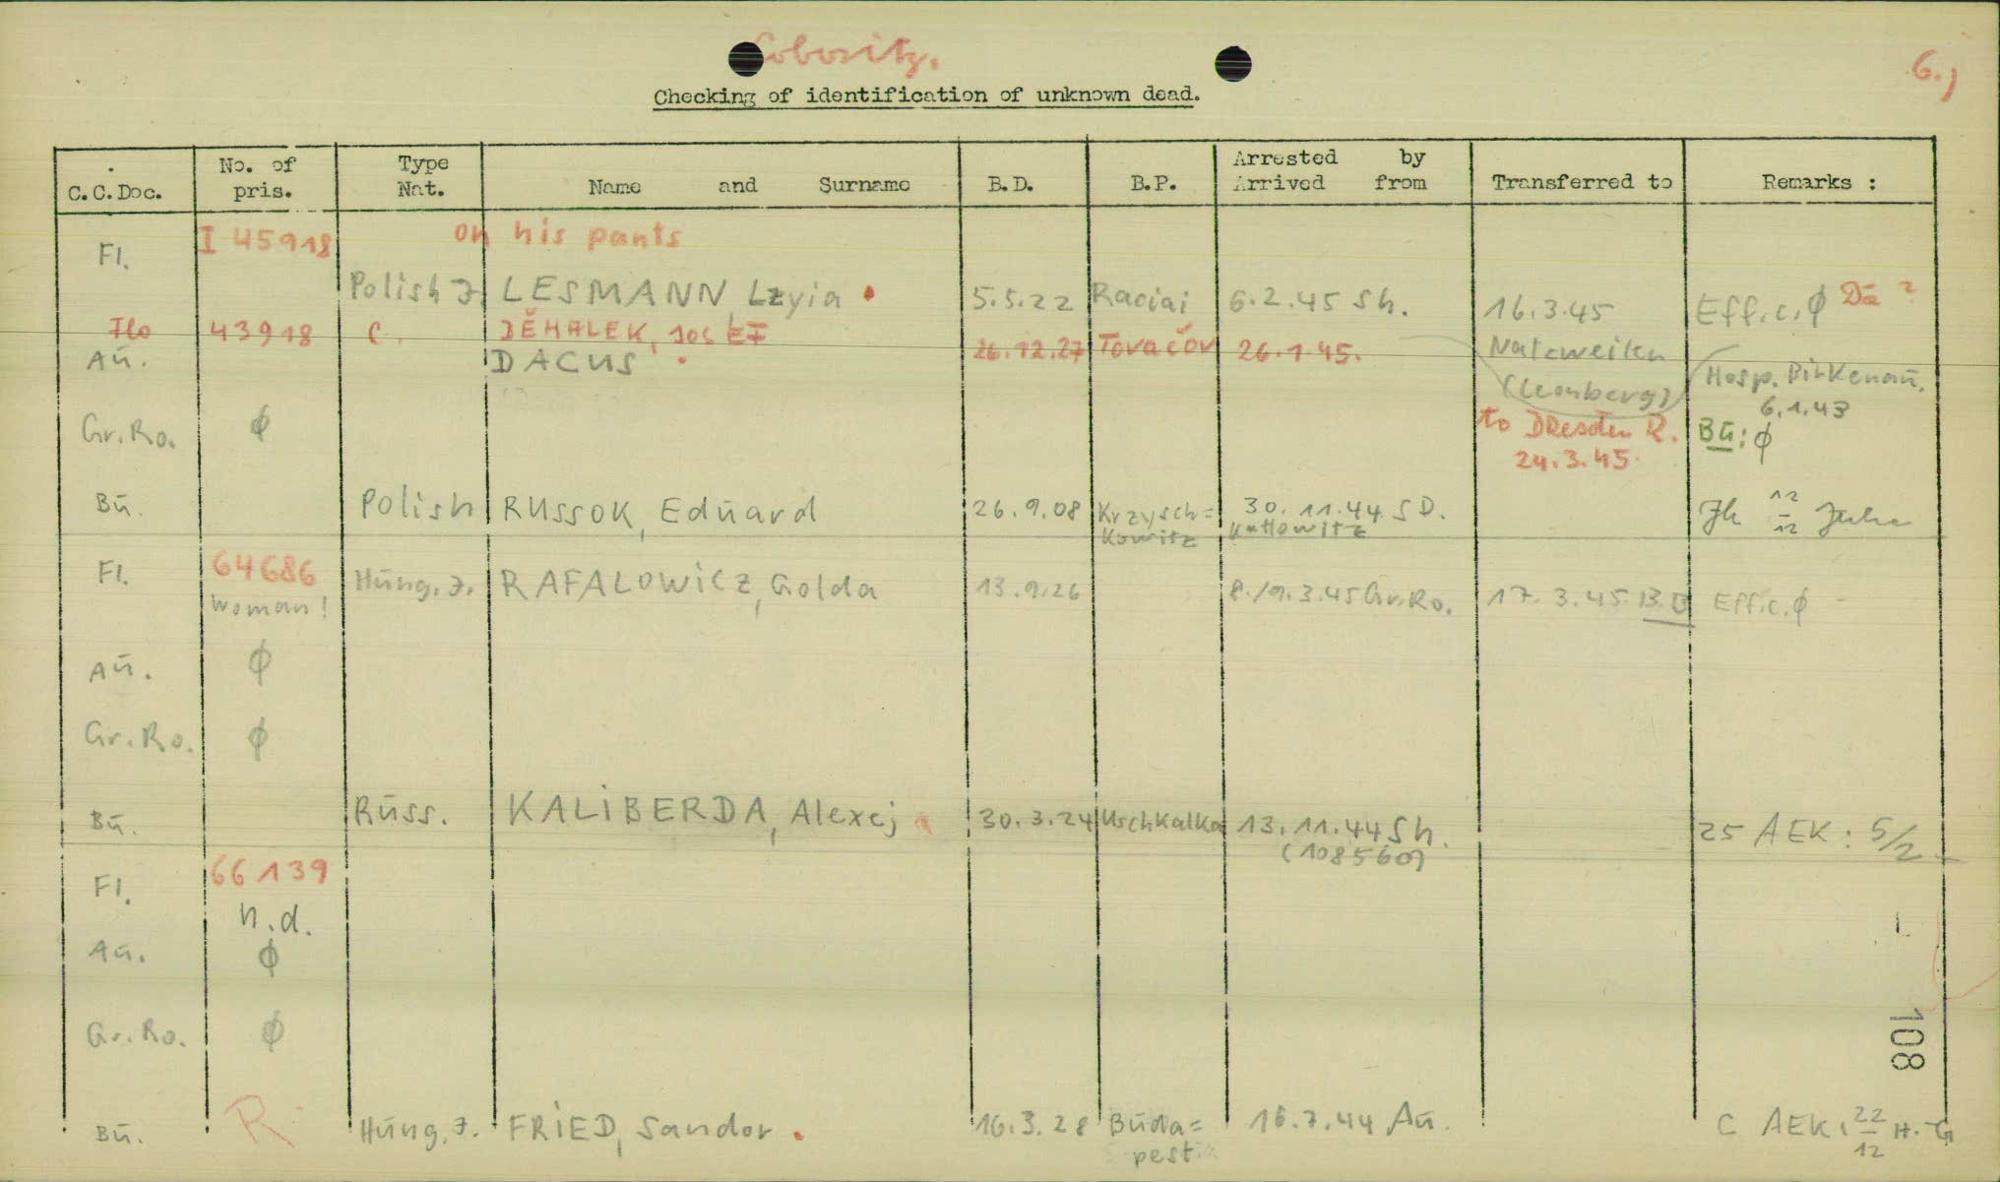 Lobositz.
6.)
Checking of identification of unknown dead.
C.C.Doc. No. of pris. Type Nat. Name and Surname B.D. B.P. Arrested by Arrived from Transferred to Remarks :
Fl. I 45918 on his pants
Polish J LESMANN Lzyia 5.5.22 Raciai 6.2.45 Sh. 16.3.45 Effic. ϕ Da ?
Flo 43918 C. DĚHALEK, 26.12.27 Tovačov 26.1.45. Natzweiler
Aū. DACUS (Leonberg) Hosp. Birkenaū.
6.1.43
Gr.Ro. ϕ to Dresden R. Bū: ϕ
24.3.45.
Bū. Polish RUSSOK, Edūard 26.9.08 Krzysch= 30.11.44 SD. 12
Kowitz Kattowitz 12
Fl. 64686 Hūng.J. RAFALOWiCZ, Golda 13.9.26 8./9.3.45 Gr.Ro. 17.3.45. B.B Effic. ϕ
Woman!
Aū. ϕ
Gr.Ro. ϕ
Bū. Rūss. KALiBERDA, Alexej 30.3.24 Uschkalka 13.11.44 Sh. 25 AEK: 5/2
(108560)
Fl. 66139
n.d.
Aū. ϕ
Gr.Ro. ϕ
108
Bū. R Hūng.J. FRiED, Sandor. 16.3.28 Būda= 16.7.44 Aū. C AEK, 22 H.-G
pest 12